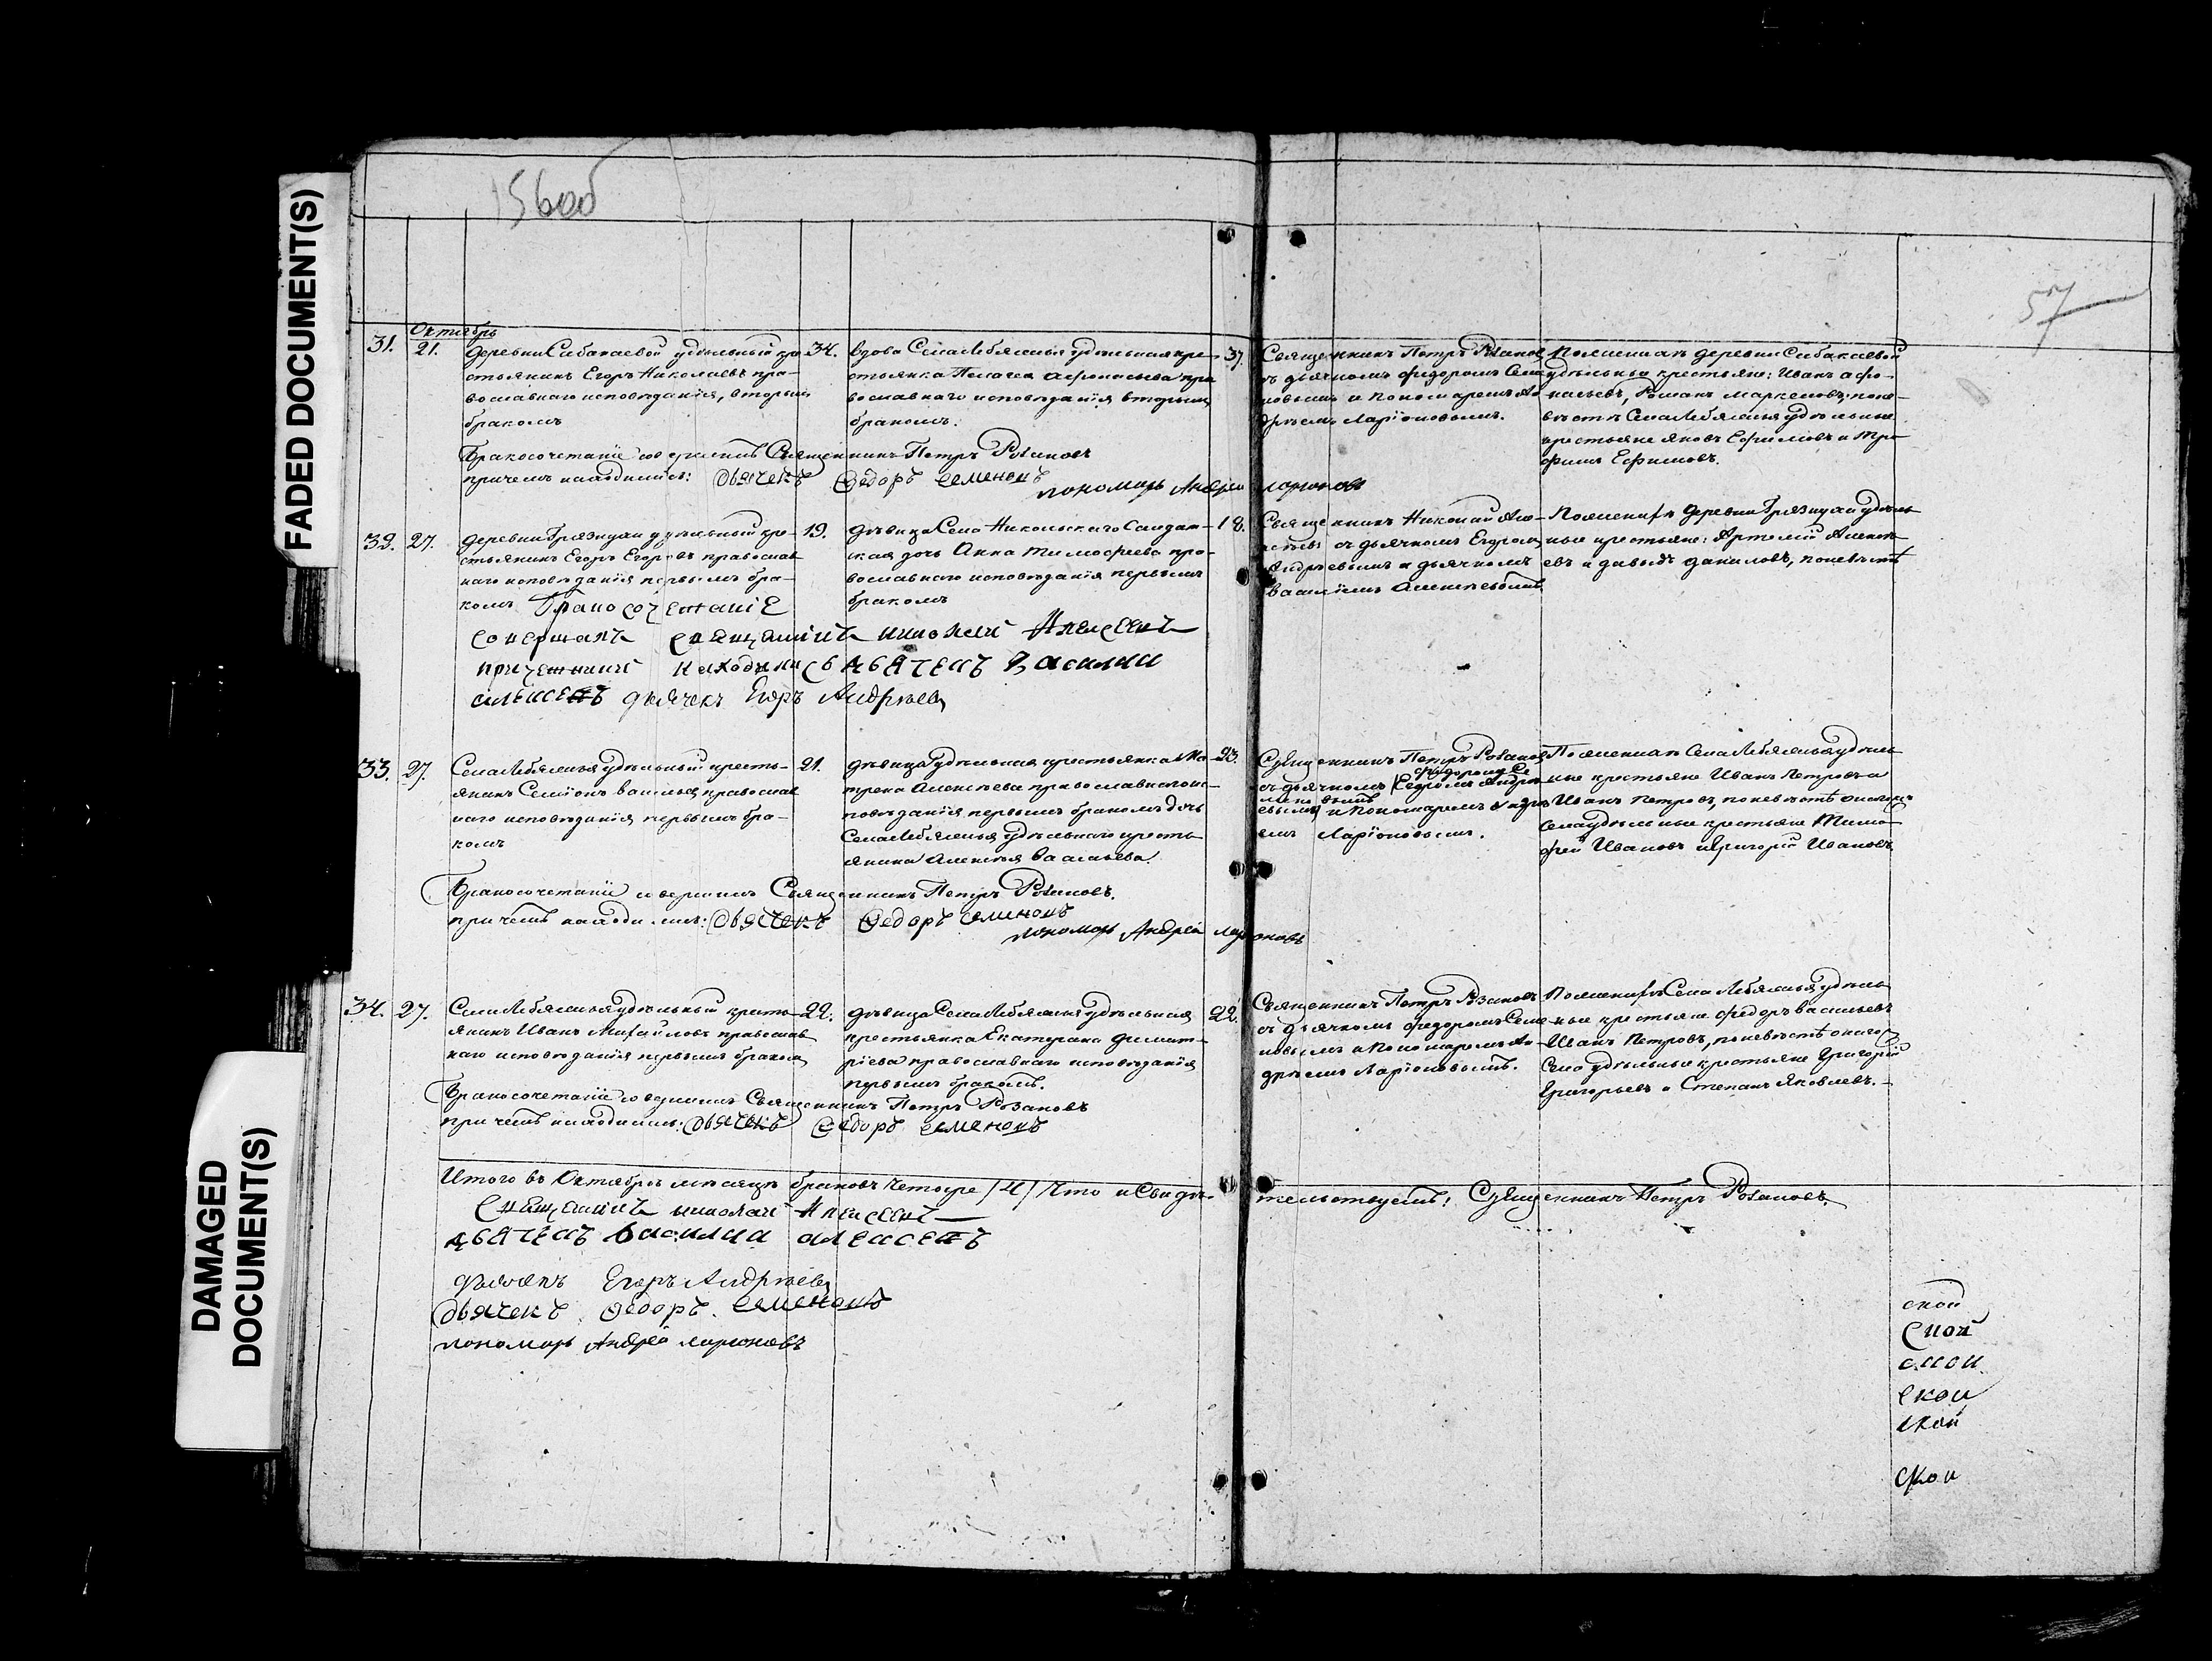 FADED DOCUMENT(S)
DAMAGED
DOCUMENT(S)
156об
57
Октябрь
31. 21.
деревни Сибакаевой удѣльный кре-
стьянинъ Егоръ Николаевъ пра-
вославнаго исповѣданія, вторымъ
бракомъ
34.
вдова Села Лебяжья удѣльная кре-
стьянка Пелагея Афонасьева пра
вославнаго исповѣданія вторымъ
бракомъ.
37.
Священникъ Петръ Розановъ
съ дьячкомъ Федоромъ Семе
новымъ и пономаремъ Ан
дреемъ Ларіоновымъ.
По женихѣ деревни Сибакаевой
удѣльные крестьяне: Иванъ Афо-
насьевъ, Романъ Маркеловъ, по не-
вѣстѣ Села Лебяжья удѣльные
крестьяне Яковъ Ефимовъ и Тро
фимъ Ефимовъ.
Бракосочетаніе совершилъ Священникъ Петръ Розановъ
при чемъ находились: Дьячекъ Федоръ Семеновъ
пономарь Андрей Ларионовъ
32. 27.
деревни Грязнухи удѣльный кре-
стьянинъ Егоръ Егоровъ православ
наго исповѣданія первымъ бра-
комъ
19.
дѣвица Села Никольскаго Салдат-
ская дочь Анна Тимофеева пра-
вославнаго исповѣданія первымъ
бракомъ
18.
Священникъ Николай Але-
ксѣевъ съ дьячкомъ Егоромъ
Андреевымъ и дьячкомъ
Василіемъ Алексѣевымъ
По женихѣ деревни Грязнухи удѣль
ные крестьяне: Артемій Алексѣ
евъ и Давыдъ Даниловъ, по невѣстѣ
Бракосочетаніе
совершалъ священникъ николай Алексеевъ
причетники находились дьячекъ Василии
алексеевъ дьячекъ Егоръ Андреевъ
33. 27.
Села Лебяжья удѣльный кресть-
янинъ Семіонъ Васильевъ православ
наго исповѣданія первымъ бра-
комъ
21.
дѣвица удѣльная крестьянка Ма-
трена Алексѣева православнаго ис-
повѣданія первымъ бракомъ дочь
Села Лебяжья удѣльнаго кресть
янина Алексѣя Васильева
23.
Священникъ Петръ Розановъ
Федоромъ Се
съ дьячкомъ Егоромъ Андре
меновымъ
евымъ и Пономаремъ Андре
емъ Ларіоновымъ.
По женихѣ Села Лебяжья удѣль
ные крестьяне Иванъ Петровъ и
Иванъ Петровъ, по невѣстѣ онаго жъ
Села удѣльные крестьяне Тимо
фей Ивановъ и Григорій Ивановъ
Бракосочетаніе совершилъ Священникъ Петръ Розановъ.
при чемъ находились: Дьячекъ Федоръ Семеновъ
пономарь Андрей Ларионовъ
34. 27.
Села Лебяжья удѣльный кресть
янинъ Иванъ Михайловъ православ
наго исповѣданія первымъ бракомъ
22.
дѣвица Села Лебяжья удѣльная
крестьянка Екатерина Димит-
ріева православнаго исповѣданія
первымъ бракомъ.
22.
Священникъ Петръ Розановъ
съ дьячкомъ Федоромъ Семе
новымъ и Пономаремъ Ан-
дреемъ Ларіоновымъ.
По женихѣ Села Лебяжья удѣль
ные крестьяне Федоръ Васильевъ
Иванъ Петровъ, по невѣстѣ онаго жъ
Села удѣльные крестьяне Григорій
Григорьевъ и Степанъ Яковлевъ.
Бракосочетаніе совершилъ Священникъ Петръ Розановъ
при чемъ находились: Дьячекъ Федоръ Семеновъ
Итого въ Октябрѣ мѣсяцѣ браковъ Четыре /4/ Что и Свидѣ-тельствуемъ: Священникъ Петръ Розановъ.
Священникъ николай Алексеевъ
дьячекъ василии алексеевъ
дьячекъ Егоръ Андреевъ
Дьячекъ Федоръ Семеновъ
пономарь Андрей Ларионовъ
ской
ской
скои
скои
ской
скои